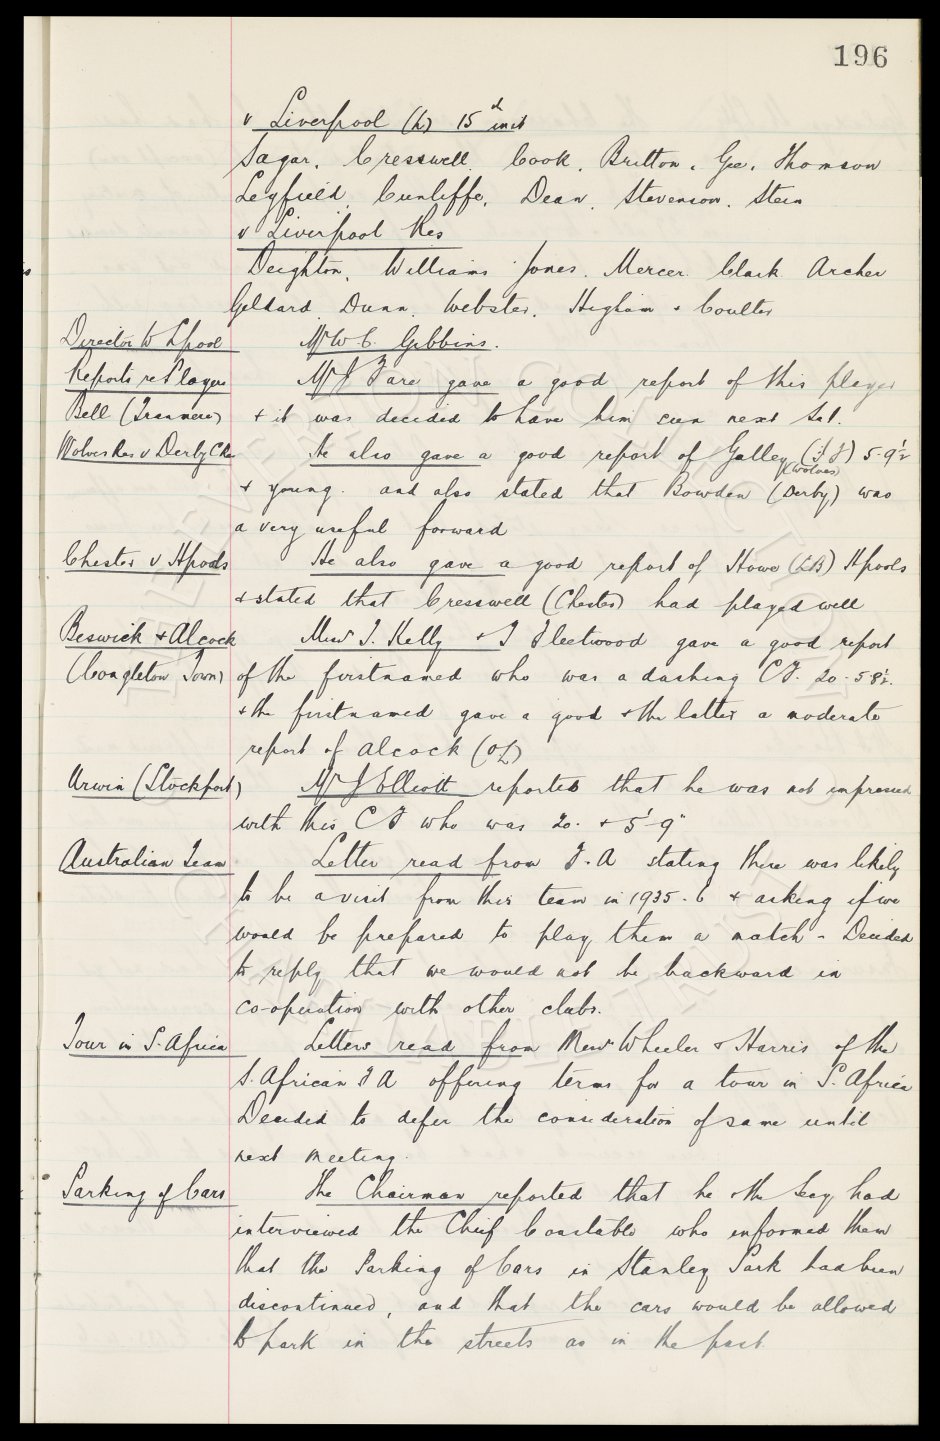 196
v Liverpool (h) 15th inst
Sagar. Cresswell. Cook. Britton. Gee. Thomson
Leyfield. Cunliffe. Dean. Stevenson. Stein
v Liverpool Res
Deighton. Williams Jones. Mercer. Clark Archer
Geldard. Dunn. Webster. Higham & Coulter
Director to Lpool Mr W C Gibbins.
Reports re Players Mr J Fare gave a good report of this player
Bell (Tranmere) & it was decided to have him seen next Sat.
Wolves Res v Derby C Res He also gave a good report of Galley (Wolves) (I F) 5-9½
& young. and also stated that Bowden (Derby) was
a very useful forward
Chester v Hpools He also gave a good report of Howe (LB) Hpools
& stated that Cresswell (Chester) had played well
Beswick & Alcock Messrs T. Kelly & T Fleetwood gave a good report
(Congleton Town) of the firstnamed who was a dashing C F. 20. 5 8½.
& the firstnamed gave a good & the latter a moderate
report of Alcock (OL)
Urwin (Stockport) Mr J Elliott reported that he was not impressed
with this C F who was 20. & 5'-9"
Australian Team Letter read from F.A stating there was likely
to be a visit from this team in 1935-6 & asking if we
would be prepared to play them a match - Decided
to reply that we would not be backward in
co-operation with other clubs.
Tour in S. Africa Letters read from Messrs Wheeler & Harris of the
S. African F A offering terms for a tour in S. Africa
Decided to defer the consideration of same until
next meeting.
Parking of Cars The Chairman reported that he & the Secy had
interviewed the Chief Constable who informed them
that the Parking of Cars in Stanley Park had been
discontinued, and that the cars would be allowed
to park in the streets as in the past.